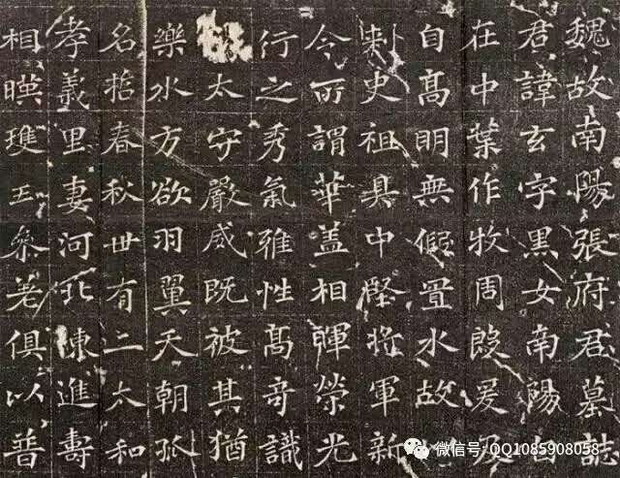 魏故南陽張府君墓誌
君諱玄字黑女南陽白
在中葉作牧周殷爰及
自高明無假置水故
刾史祖具中堅將軍新
今所謂華盖相暉榮光
行之秀氣雅性高奇識
太守嚴威既被其猶
樂水方欲羽翼天朝抓
名哲春秋卅有二太和
孝義里妻河北陳進壽
相暎瓊玉參差俱以普
微信号: QQ1085908058